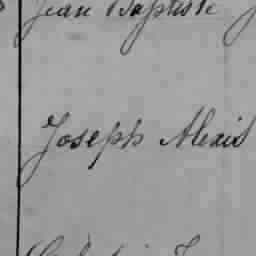 Jean Baptiste
Joseph Alexis